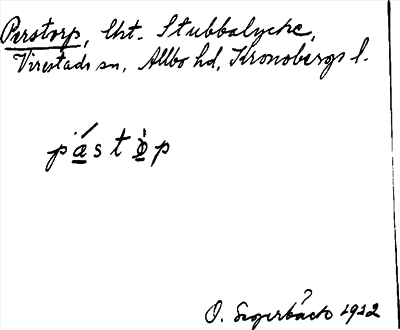 Perstorp, lht. Stubbalycke,
Virestads sn, Allbo hd, Kronobergs l.
pástòp
O. 1912